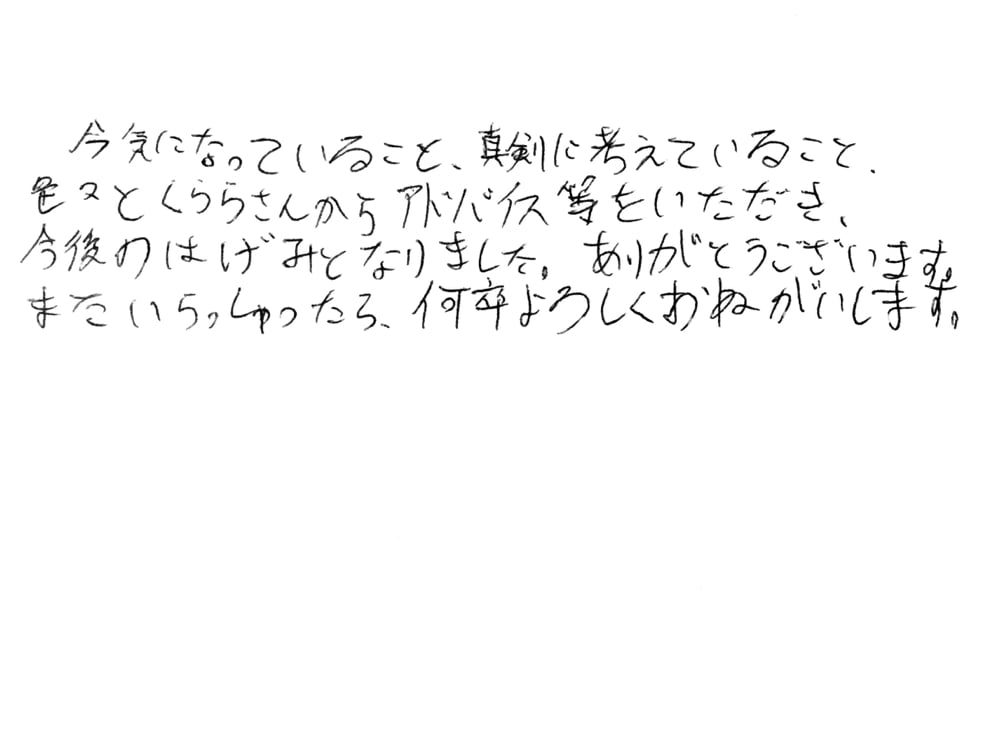 今気になっていること、真剣に考えていること、
色々とくららさんからアドバイス等をいただき、
今後のはげみとなりました。ありがとうございます。
またいらっしゃったら、何卒よろしくおねがいします。